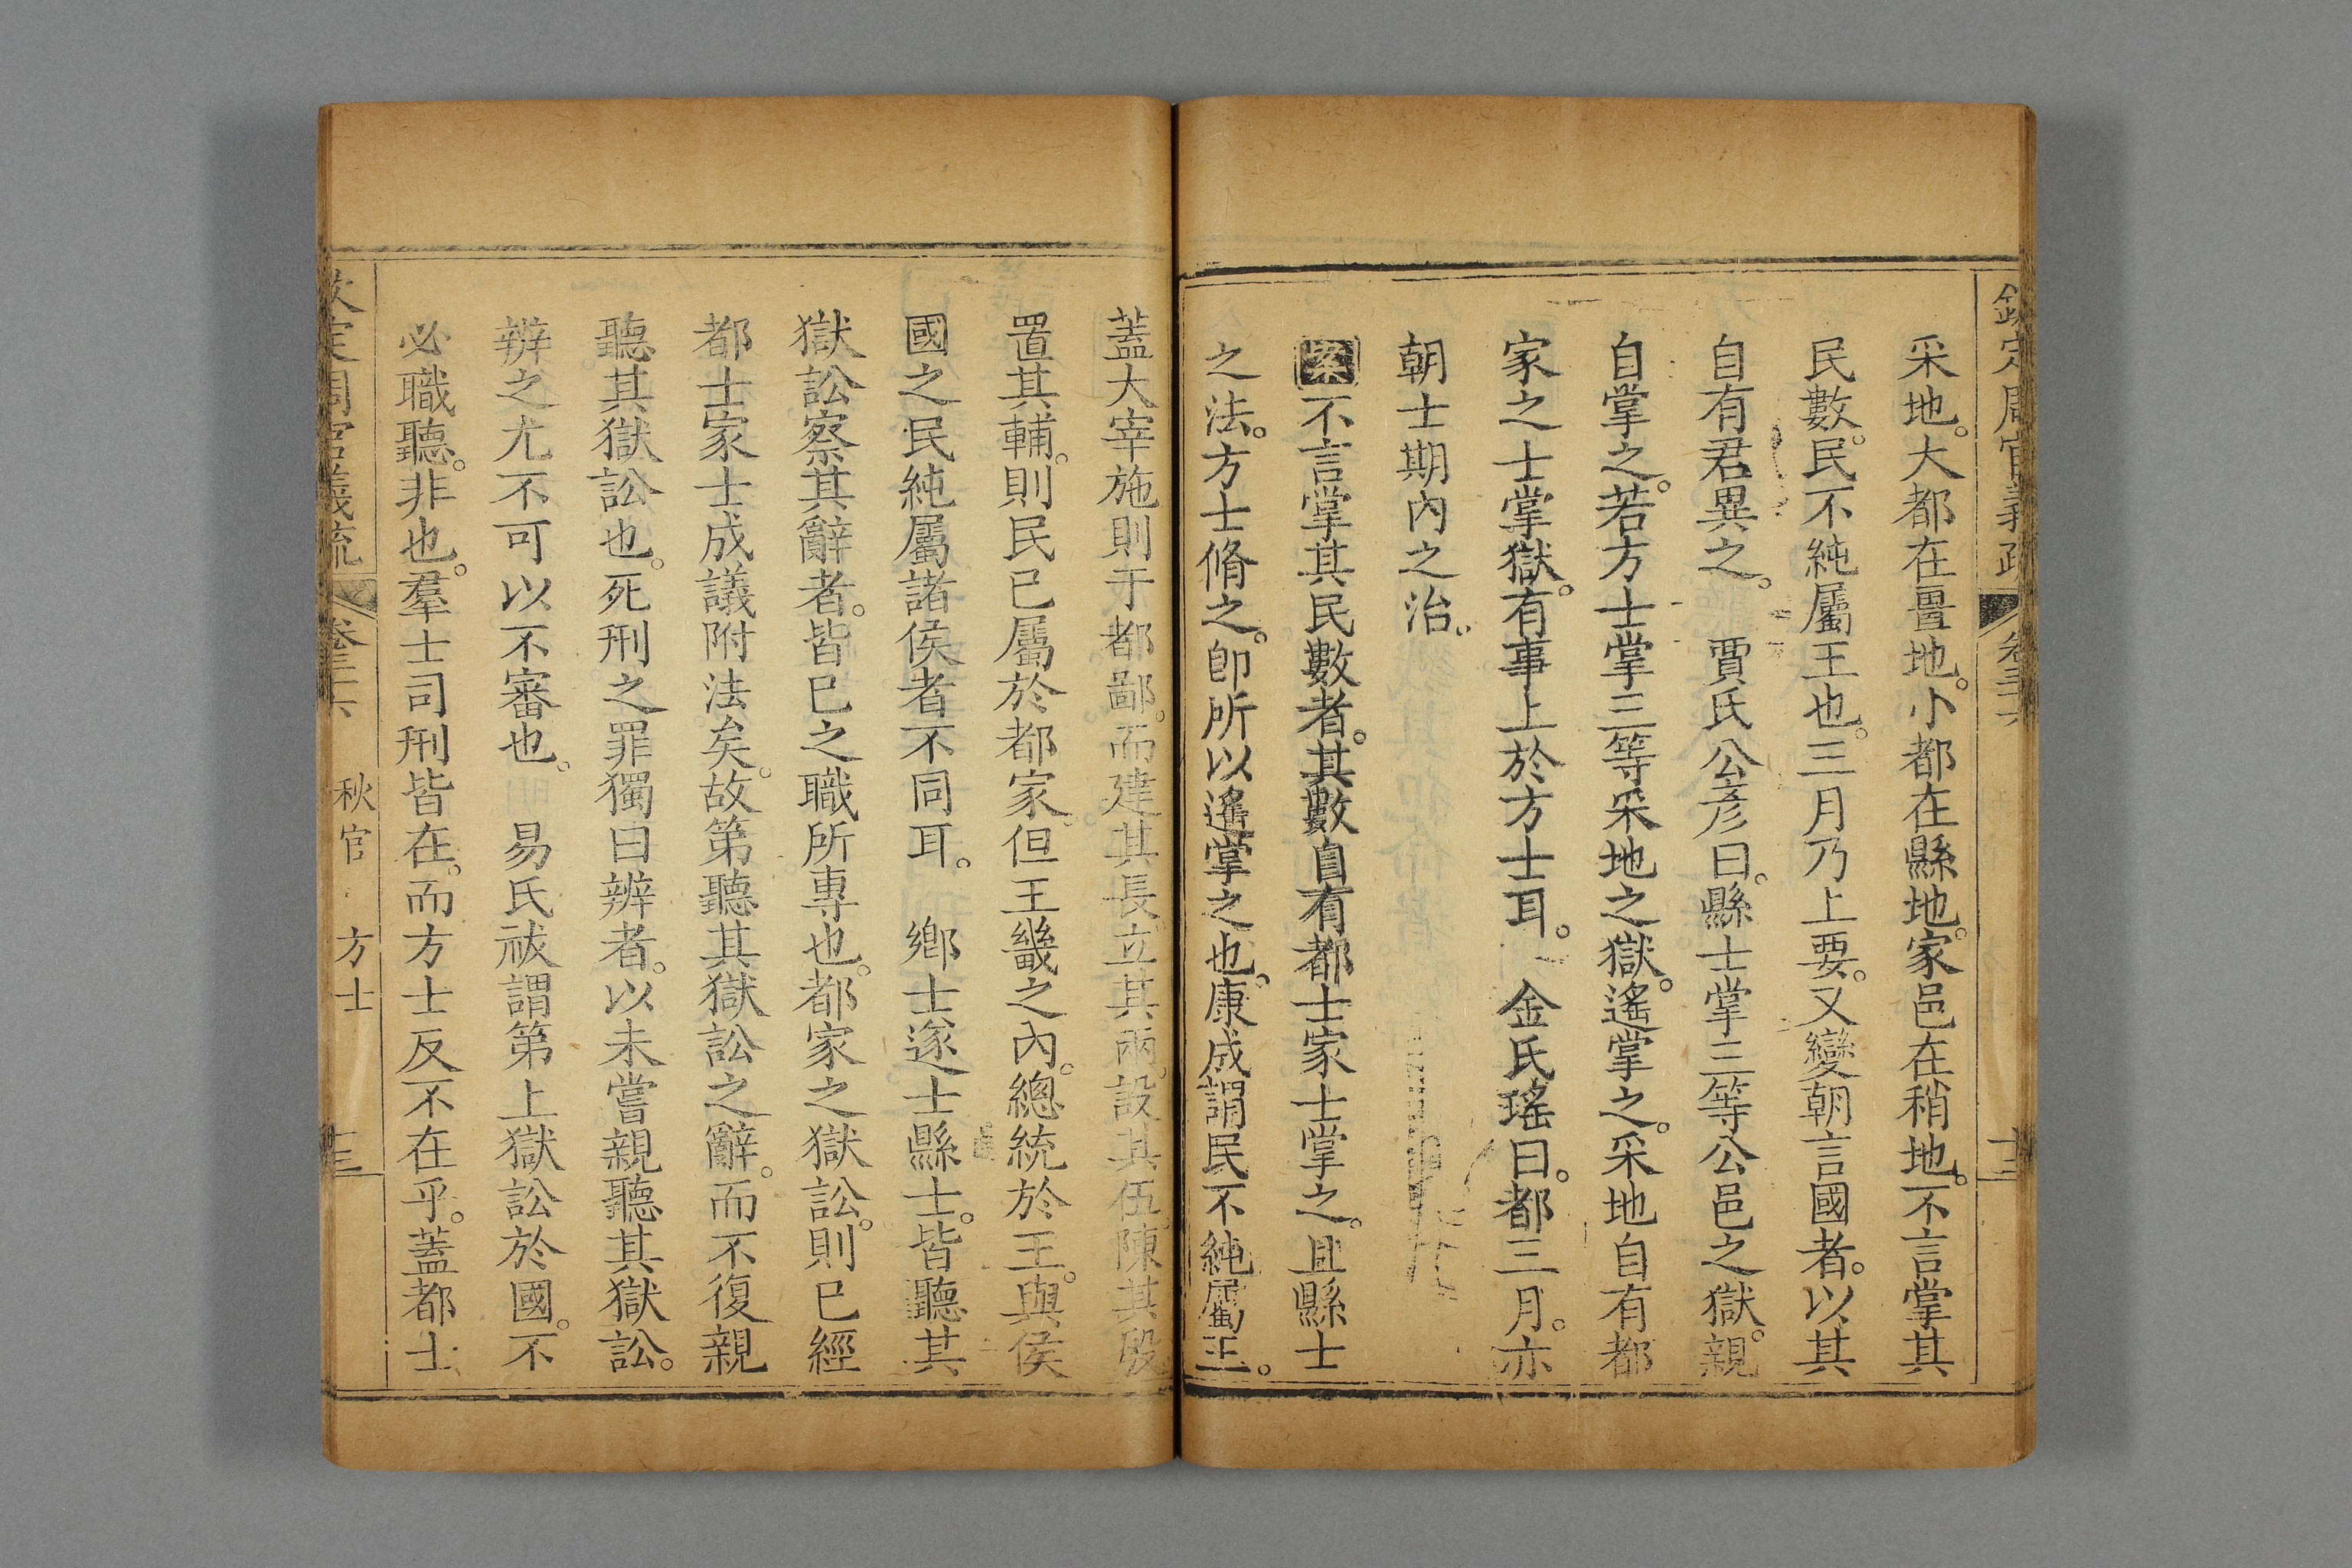 欽定周官義疏 卷三十六 十三
采地。大都在畺地。小都在縣地。家邑在稍地。不言掌其
民數。民不純屬王也。三月乃上要。又變朝言國者。以其
自有君異之。 賈氏公彥曰。縣士掌三等公邑之獄。親
自掌之。若方士掌三等采地之獄。遙掌之。采地自有都
家之士掌獄。有事上於方士耳。 金氏瑤曰。都三月。亦
朝士期內之治。
案不言掌其民數者。其數自有都士家士掌之。且縣士
之法。方士脩之。卽所以遙掌之也。康成謂民不純屬王。
蓋大宰施則于都鄙。而建其長。立其兩。設其伍。陳其殷
置其輔。則民已屬於都家。但王畿之內。總統於王。與侯
國之民純屬諸侯者不同耳。 鄉士遂士縣士。皆聽其
獄訟察其辭者。皆已之職所專也。都家之獄訟。則已經
都士家士成議附法矣。故第聽其獄訟之辭。而不復親
聽其獄訟也。死刑之罪獨曰辨者。以未嘗親聽其獄訟。
辨之尤不可以不審也。 易氏祓謂第上獄訟於國。不
必職聽。非也。羣士司刑皆在。而方士反不在乎。蓋都士
欽定周官義疏 卷三十六 秋官 方士 十三